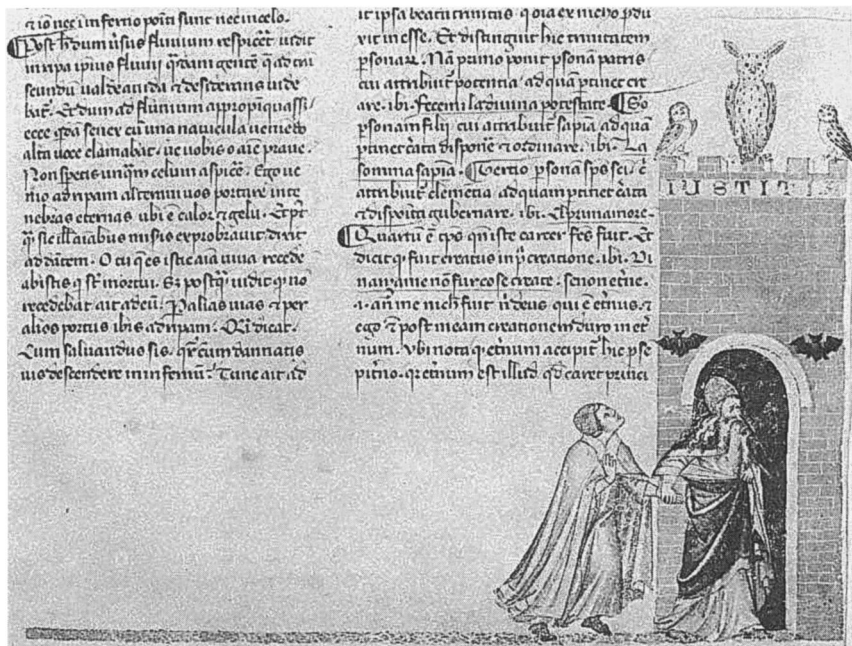 ⁊ iõ nec in ferno põiti sunt nec in celo.
Post h̃ dum ũsus fluvium respicẽt uidit
in ripa ip̃ius fluvii q̃dam gentẽ q̃ ad trã
seundũ ualde ardẽda ⁊ desiderans uide
bat᷑. Et dum ad fluvium appropĩquassẽ
ecce q̃dã senex cũ una navicula ueniẽs
alta uoce clamabat. ue uobis o aĩe prave.
Non sperẽtis unq̃m celum aspicẽ. Ego ue
nio ad ripam alteram uos portare in te
nebras eternas ubi ẽ calor ⁊ gelu. Et pt̃
q̃ sic ill̃ aĩabus misĩs exprobravit dixit
ad dãtem. O tu q̃ es istic aĩa uiua recede
ab istis q̃ sĩt mortui. Sꝫ postq̃ uidit q̃ nõ
recedebat ait ad eũ. P alias uias ⁊ per
alios portus ibis ad ripam. Q̃si dicat.
Cum saluandus sis. q̃re cum dannatis
uis descendere in infernũ. Tunc ait ad
it ipsa beata trinitas q̃ oĩa ex nichõ ꝓdu
xit in esse. Et distinguit hic trinitatem
ꝑsonaꝝ. Nã primo ponit ꝑsonã patris
cui attribuit᷑ potentia. ad quã ꝑtinet cre
are. ibi. Fecemi la divina potestate. Sõ
ꝑsonam filii cui attribuit᷑ sapĩa ad quã
ꝑtinet c̃ata dispone᷑ ⁊ ordinare. ibi. La
somma sapĩa. Tertio ꝑsonã sp̃s sc̃i. c̃
attribuit᷑ clementia. ad quam ꝑtinet c̃ata
⁊ disposita gubernare. ibi. El primamore.
Quartũ ẽ tp̃s qñ iste carcer fc̃s fuit. Et
dicit q̃ fuit creatus in p̃ creatione. ibi. Di
nançi ame non fur cose create. se non et̃ne.
.i. añ me nich̃ fuit ñ deus qui ẽ et̃nus. ⁊
ego ⁊ post meam creationem duro in et̃
num. Ubi nota q̃ et̃num accipit᷑ hic ꝓ se
pit̃no. q̃r et̃num est illud qd̃ caret prĩci
IUSTITIA